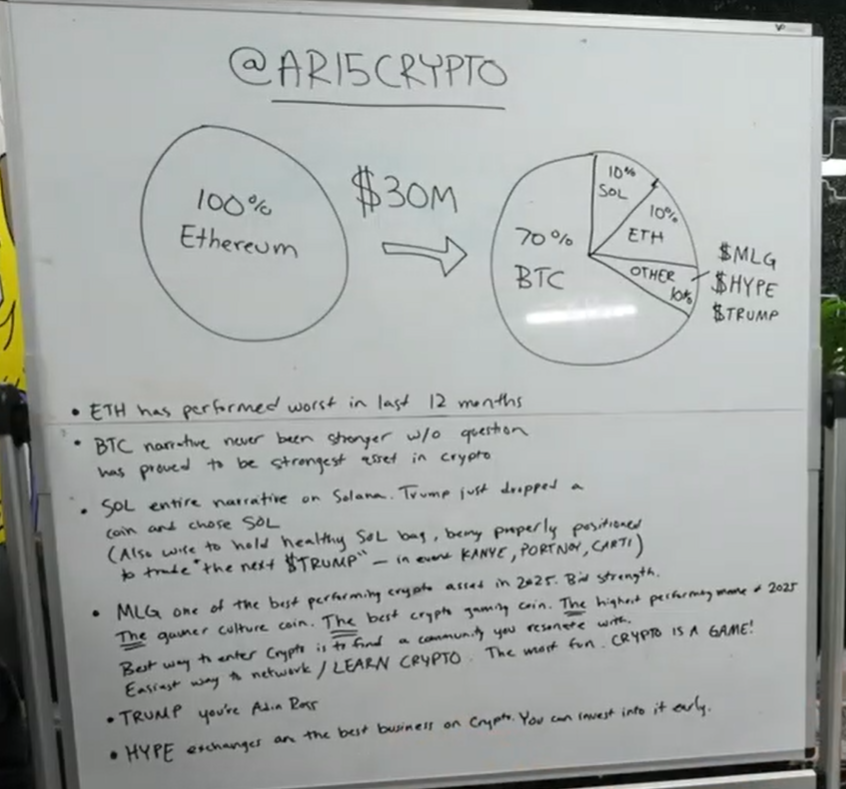 @AR15CRYPTO
100%
Ethereum
$30M
10%
SOL
10%
ETH
70%
BTC
OTHER
10%
$MLG
$HYPE
$TRUMP
• ETH has performed worst in last 12 months
• BTC narrative never been stronger w/o question
has proved to be strongest asset in crypto
• SOL entire narrative on Solana. Trump just dropped a
coin and chose SOL
(Also wise to hold healthy SOL bag, being properly positioned
to trade "the next $TRUMP" - in event KANYE, PORTNOY, CARTI)
• MLG one of the best performing crypto asset in 2025. Bid strength.
The gamer culture coin. The best crypto gaming coin. The highest performing meme of 2025
Best way to enter Crypto is to find a community you resonate with.
Easiest way to network / LEARN CRYPTO. The most fun. CRYPTO IS A GAME!
• TRUMP you're Adin Ross
• HYPE exchanges are the best business on Crypto. You can invest into it early.